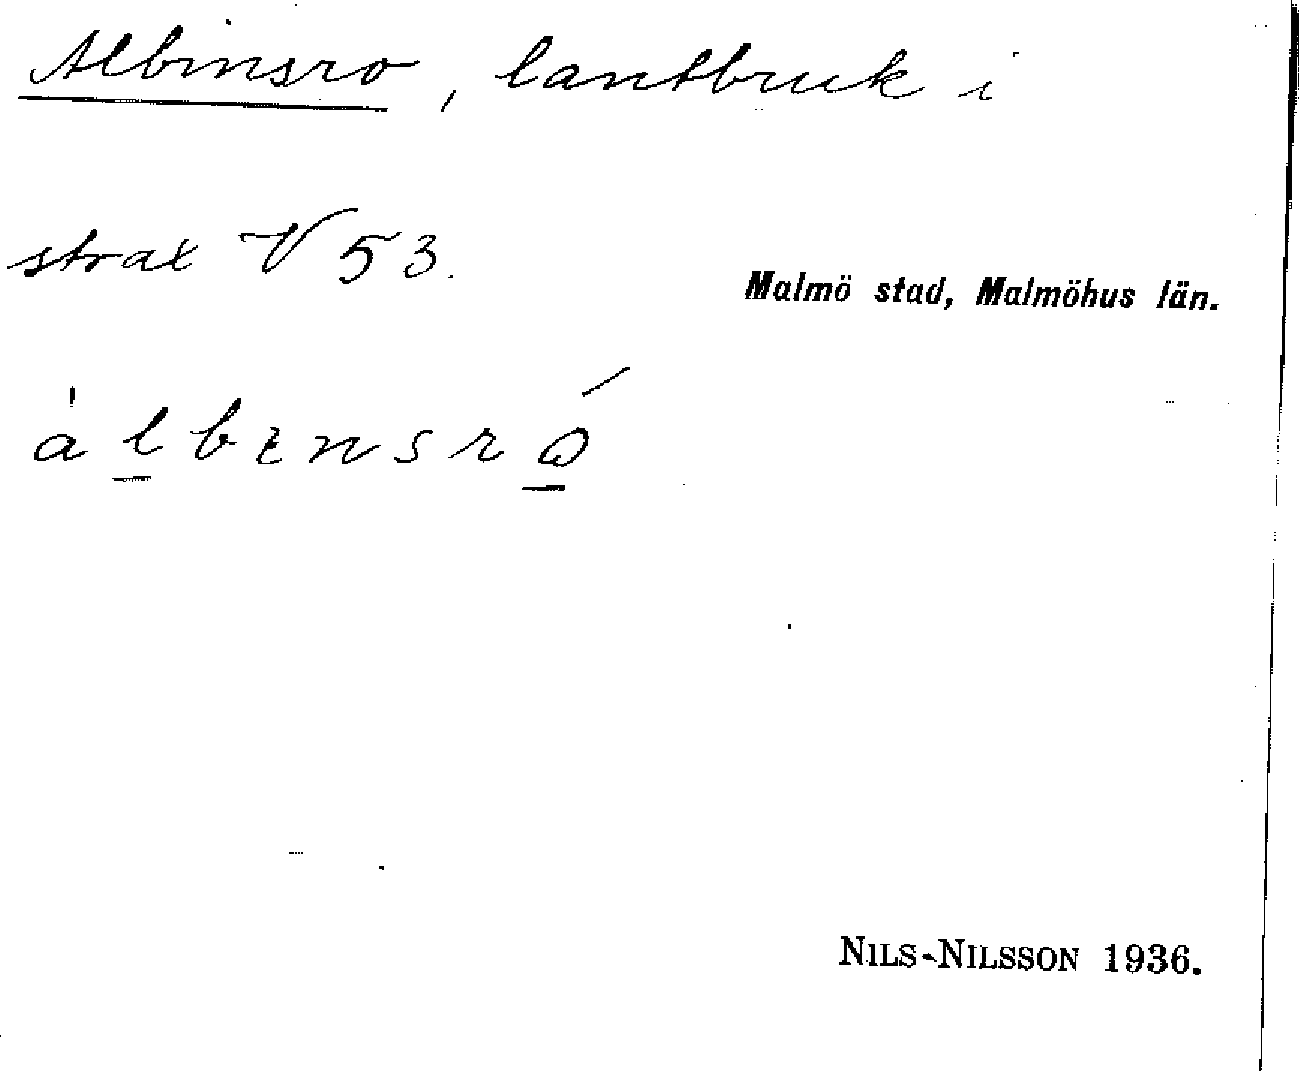 Albinsro, lantbruk i
strax V 53.
Malmö stad, Malmöhus län.
a̍l̲bɪnsrώ̲
NILS-NILSSON 1936.